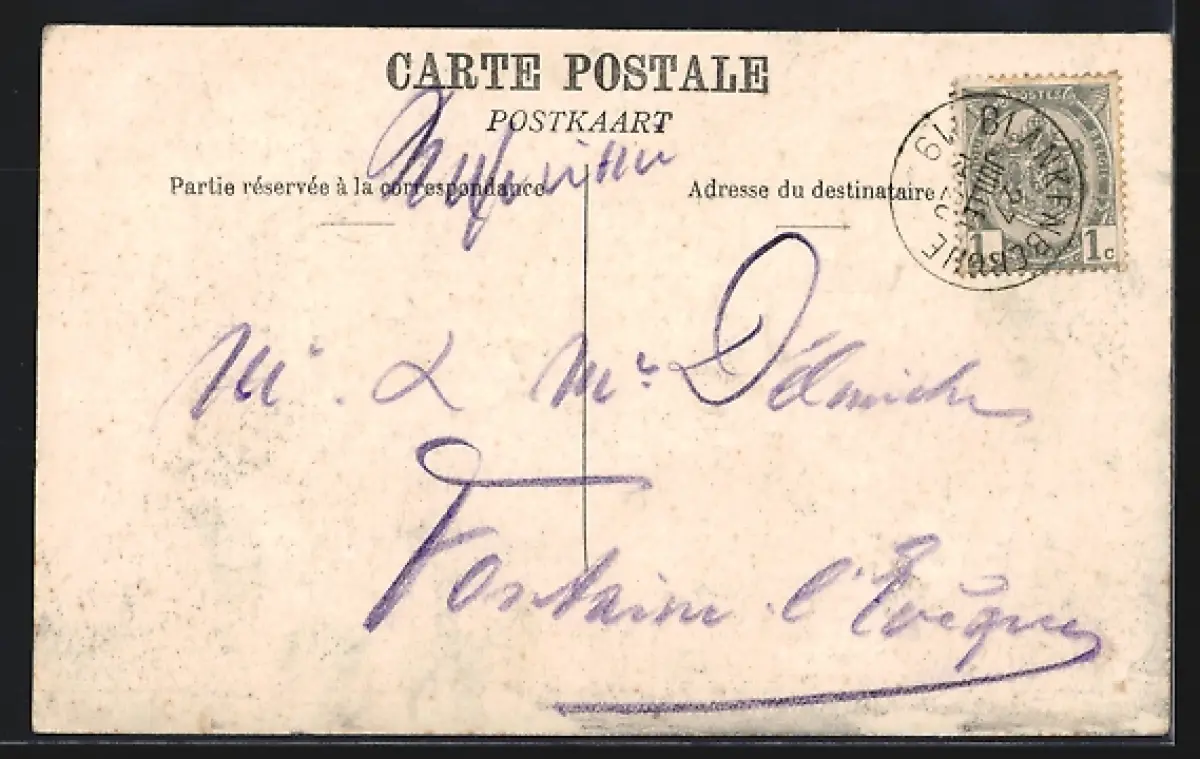 CARTE POSTALE
POSTKAART
Partie réservée à la correspondance
Adresse du destinataire
POSTES
BLANKENBERGHE
JUIL
1 1c
Mr. & Me Délmiche
Fontaine l'Évêque